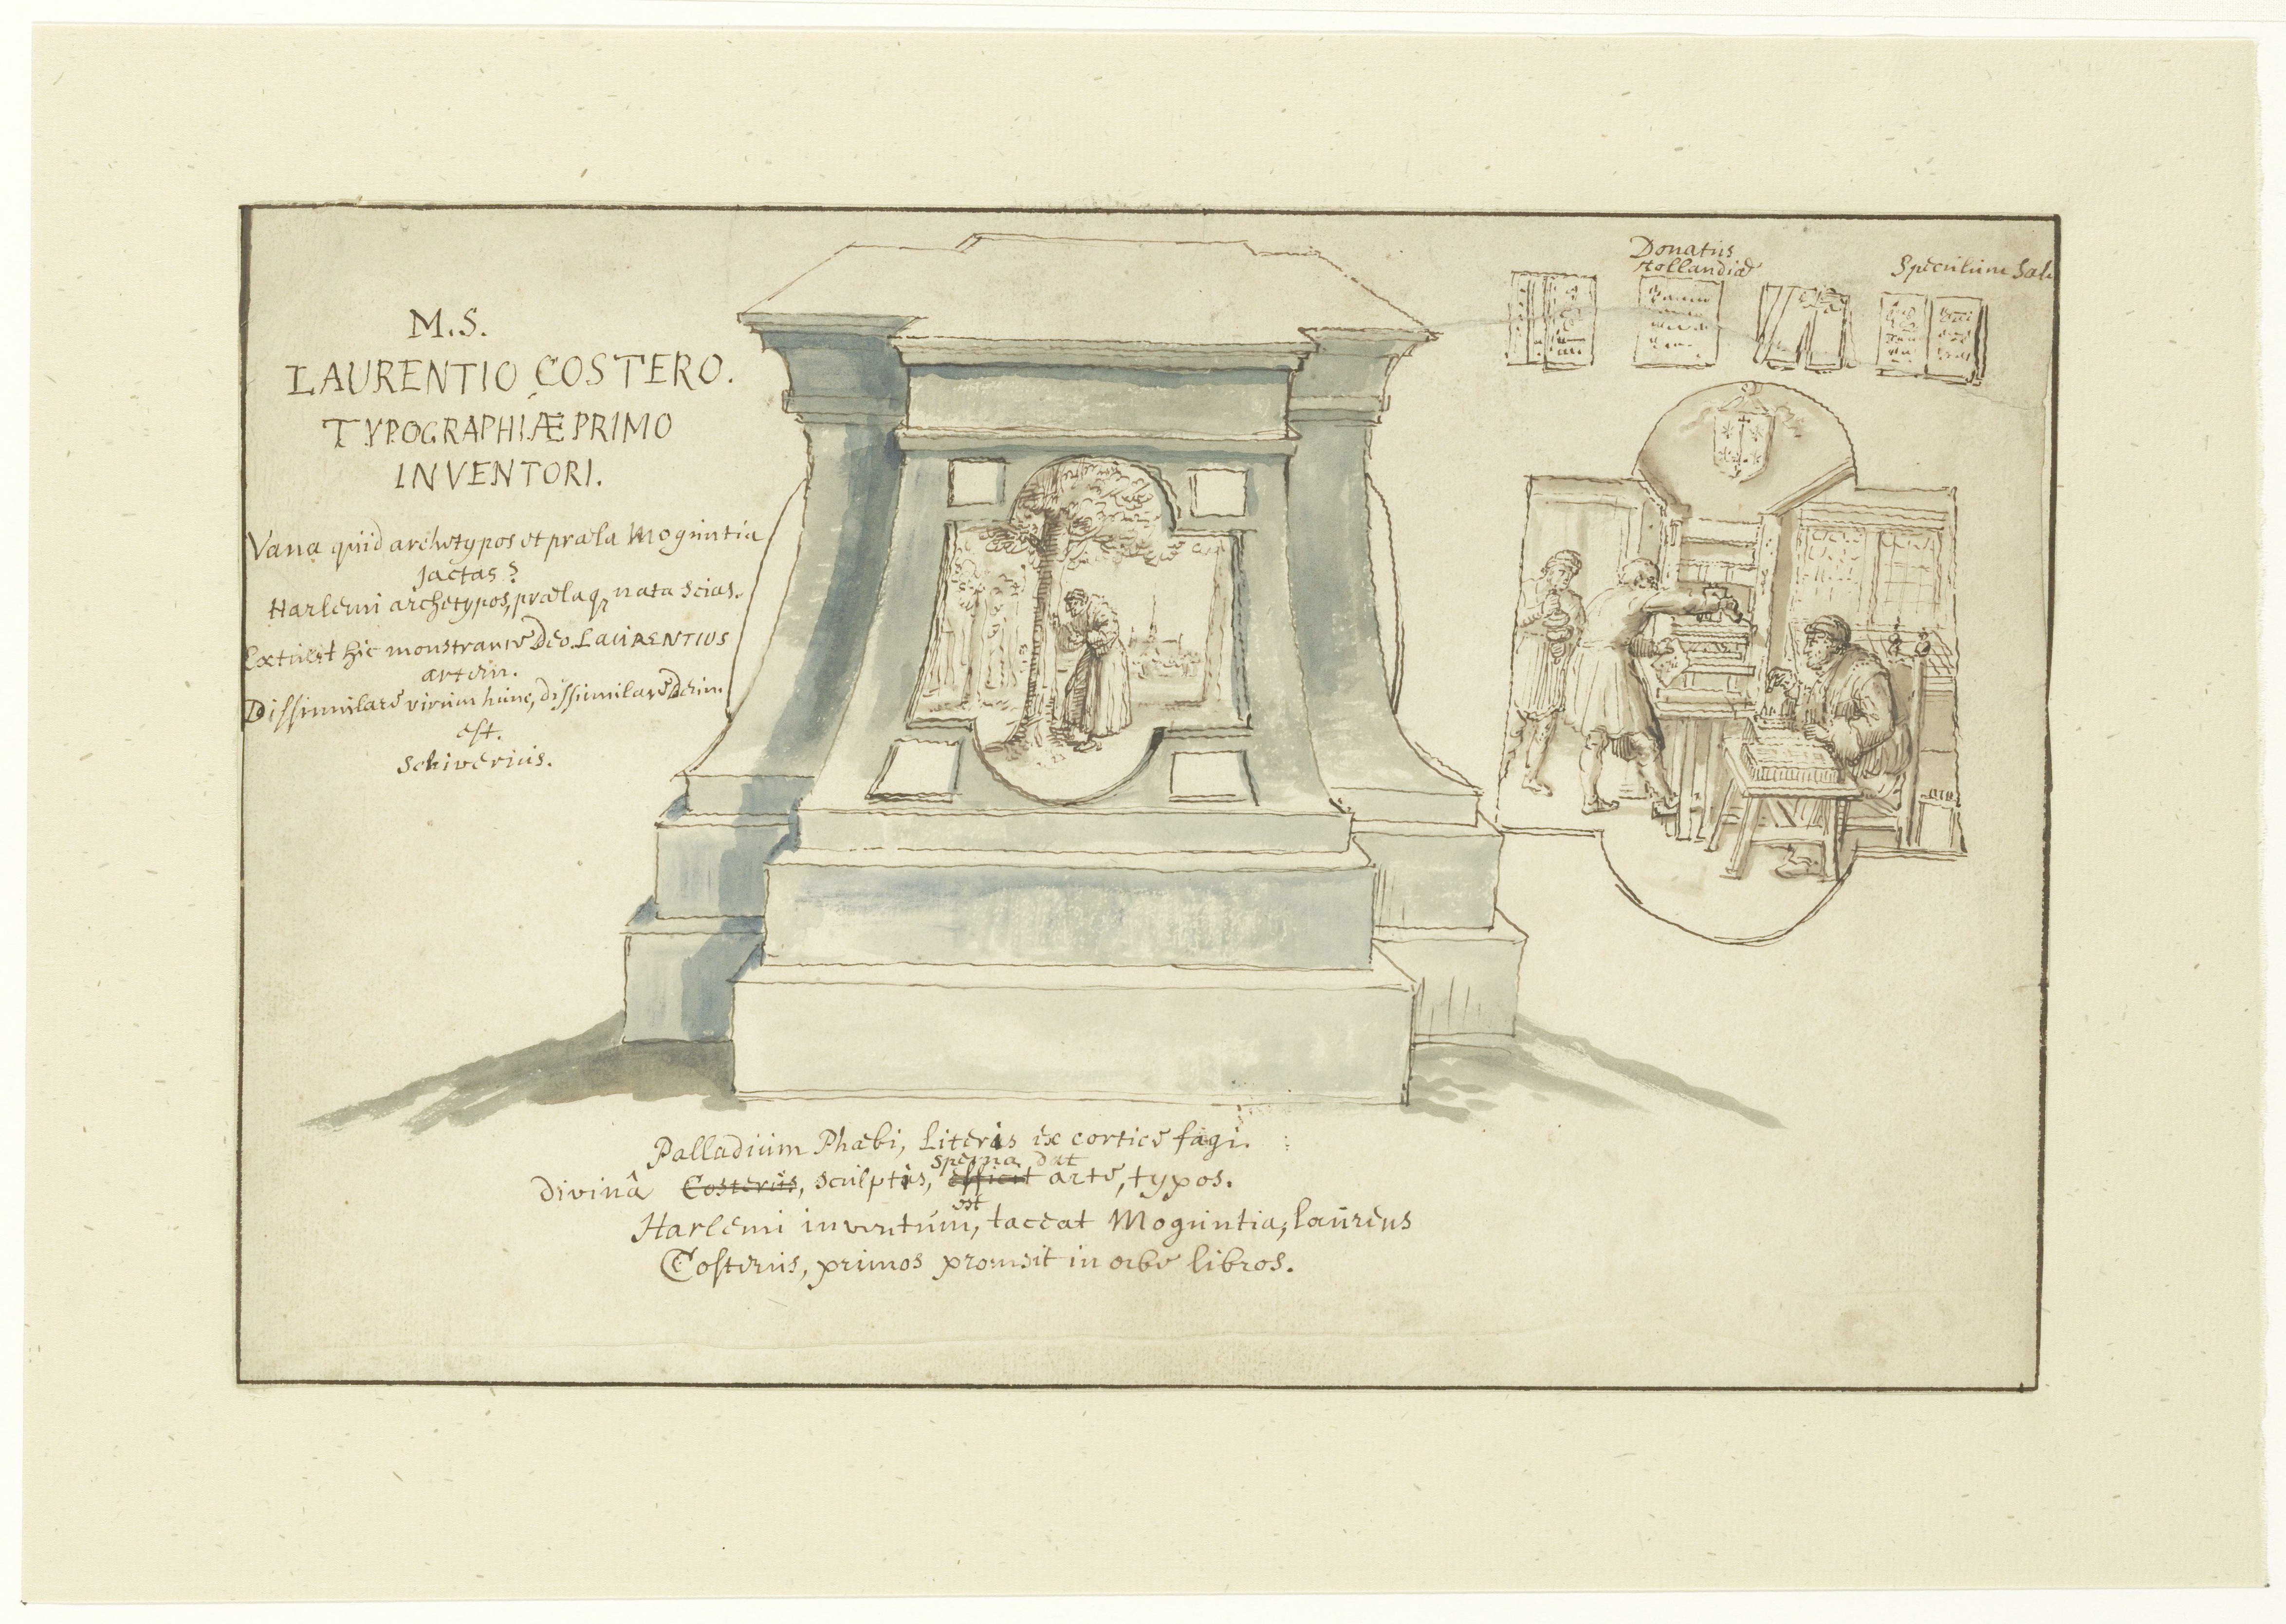 M.S.
LAURENTIO COSTERO.
TYPOGRAPHIÆ PRIMO
INVENTORI.
Vana quid archetypos et præla Moguntia
jactas?
Harlemi archetypos, prælaq, nata scias.
Extulit hic monstrante Deo LAURENTIUS
artem.
Dissimulare virum hunc, dissimulare Deum
est.
Schiverius.
Donatus
Hollandiæ
Speculum Sal
Palladium Phæbi, Literis ex cortice fagi.
sperna dat
divinâ Costerus, sculptis, efficit arte, typos.
est
Harlemi inventum, taceat Moguntia, laureus
Costerus, primos promsit in orbe libros.